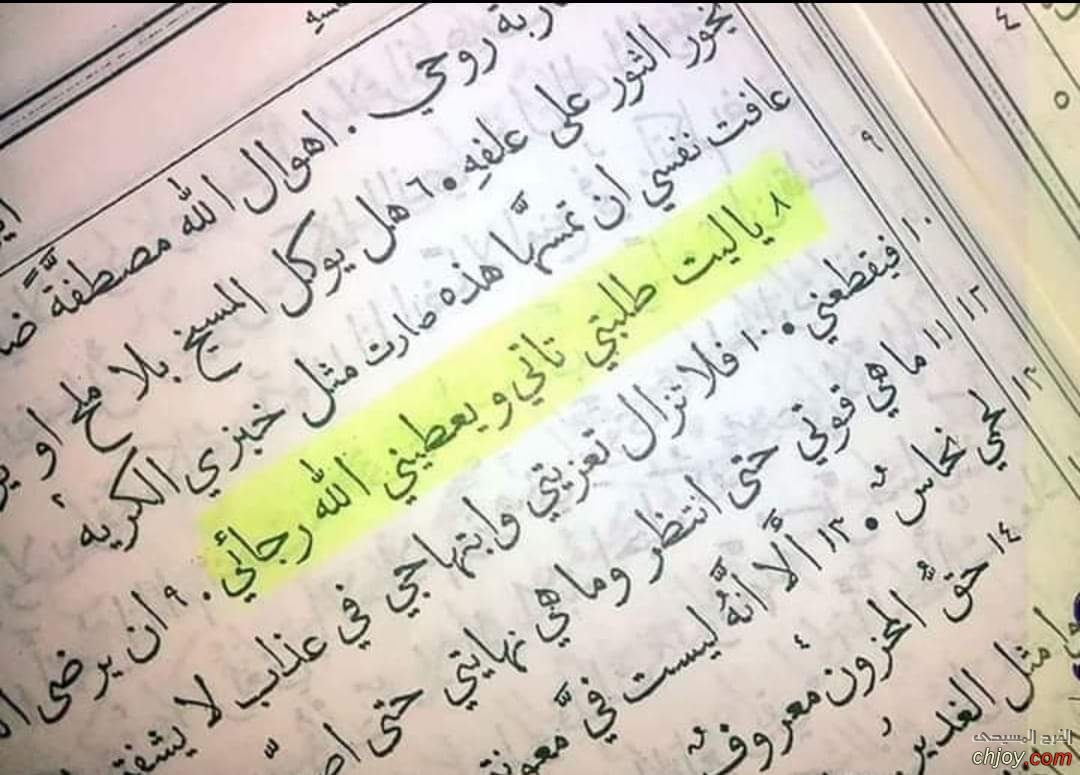 روحي . اهوال الله مصطفَّة
يخور الثور على علفهِ . ٦ هل يوكل المسيخ بلا ملح او
عافت نفسي ان تمسَّها هذه صارت مثل خبزي الكريه
٨ ياليت طلبتي تاتي ويعطيني الله رجائي . ٩ ان يرضى
فيقطعني . ١٠ فلا تزال تعزيتي وابتهاجي في عذاب لا
١١ ما هي قوتي حتى انتظر وما هي نهايتي حتى
لحمي نحاسٌ . ١٣ أَلا انَّهُ ليست فيَّ
١٤ حقُّ المحزون معروف
مثل الغدير
٤
٥
٩
١٠
١٢
١٣
الفرح المسيحى
chjoy.com